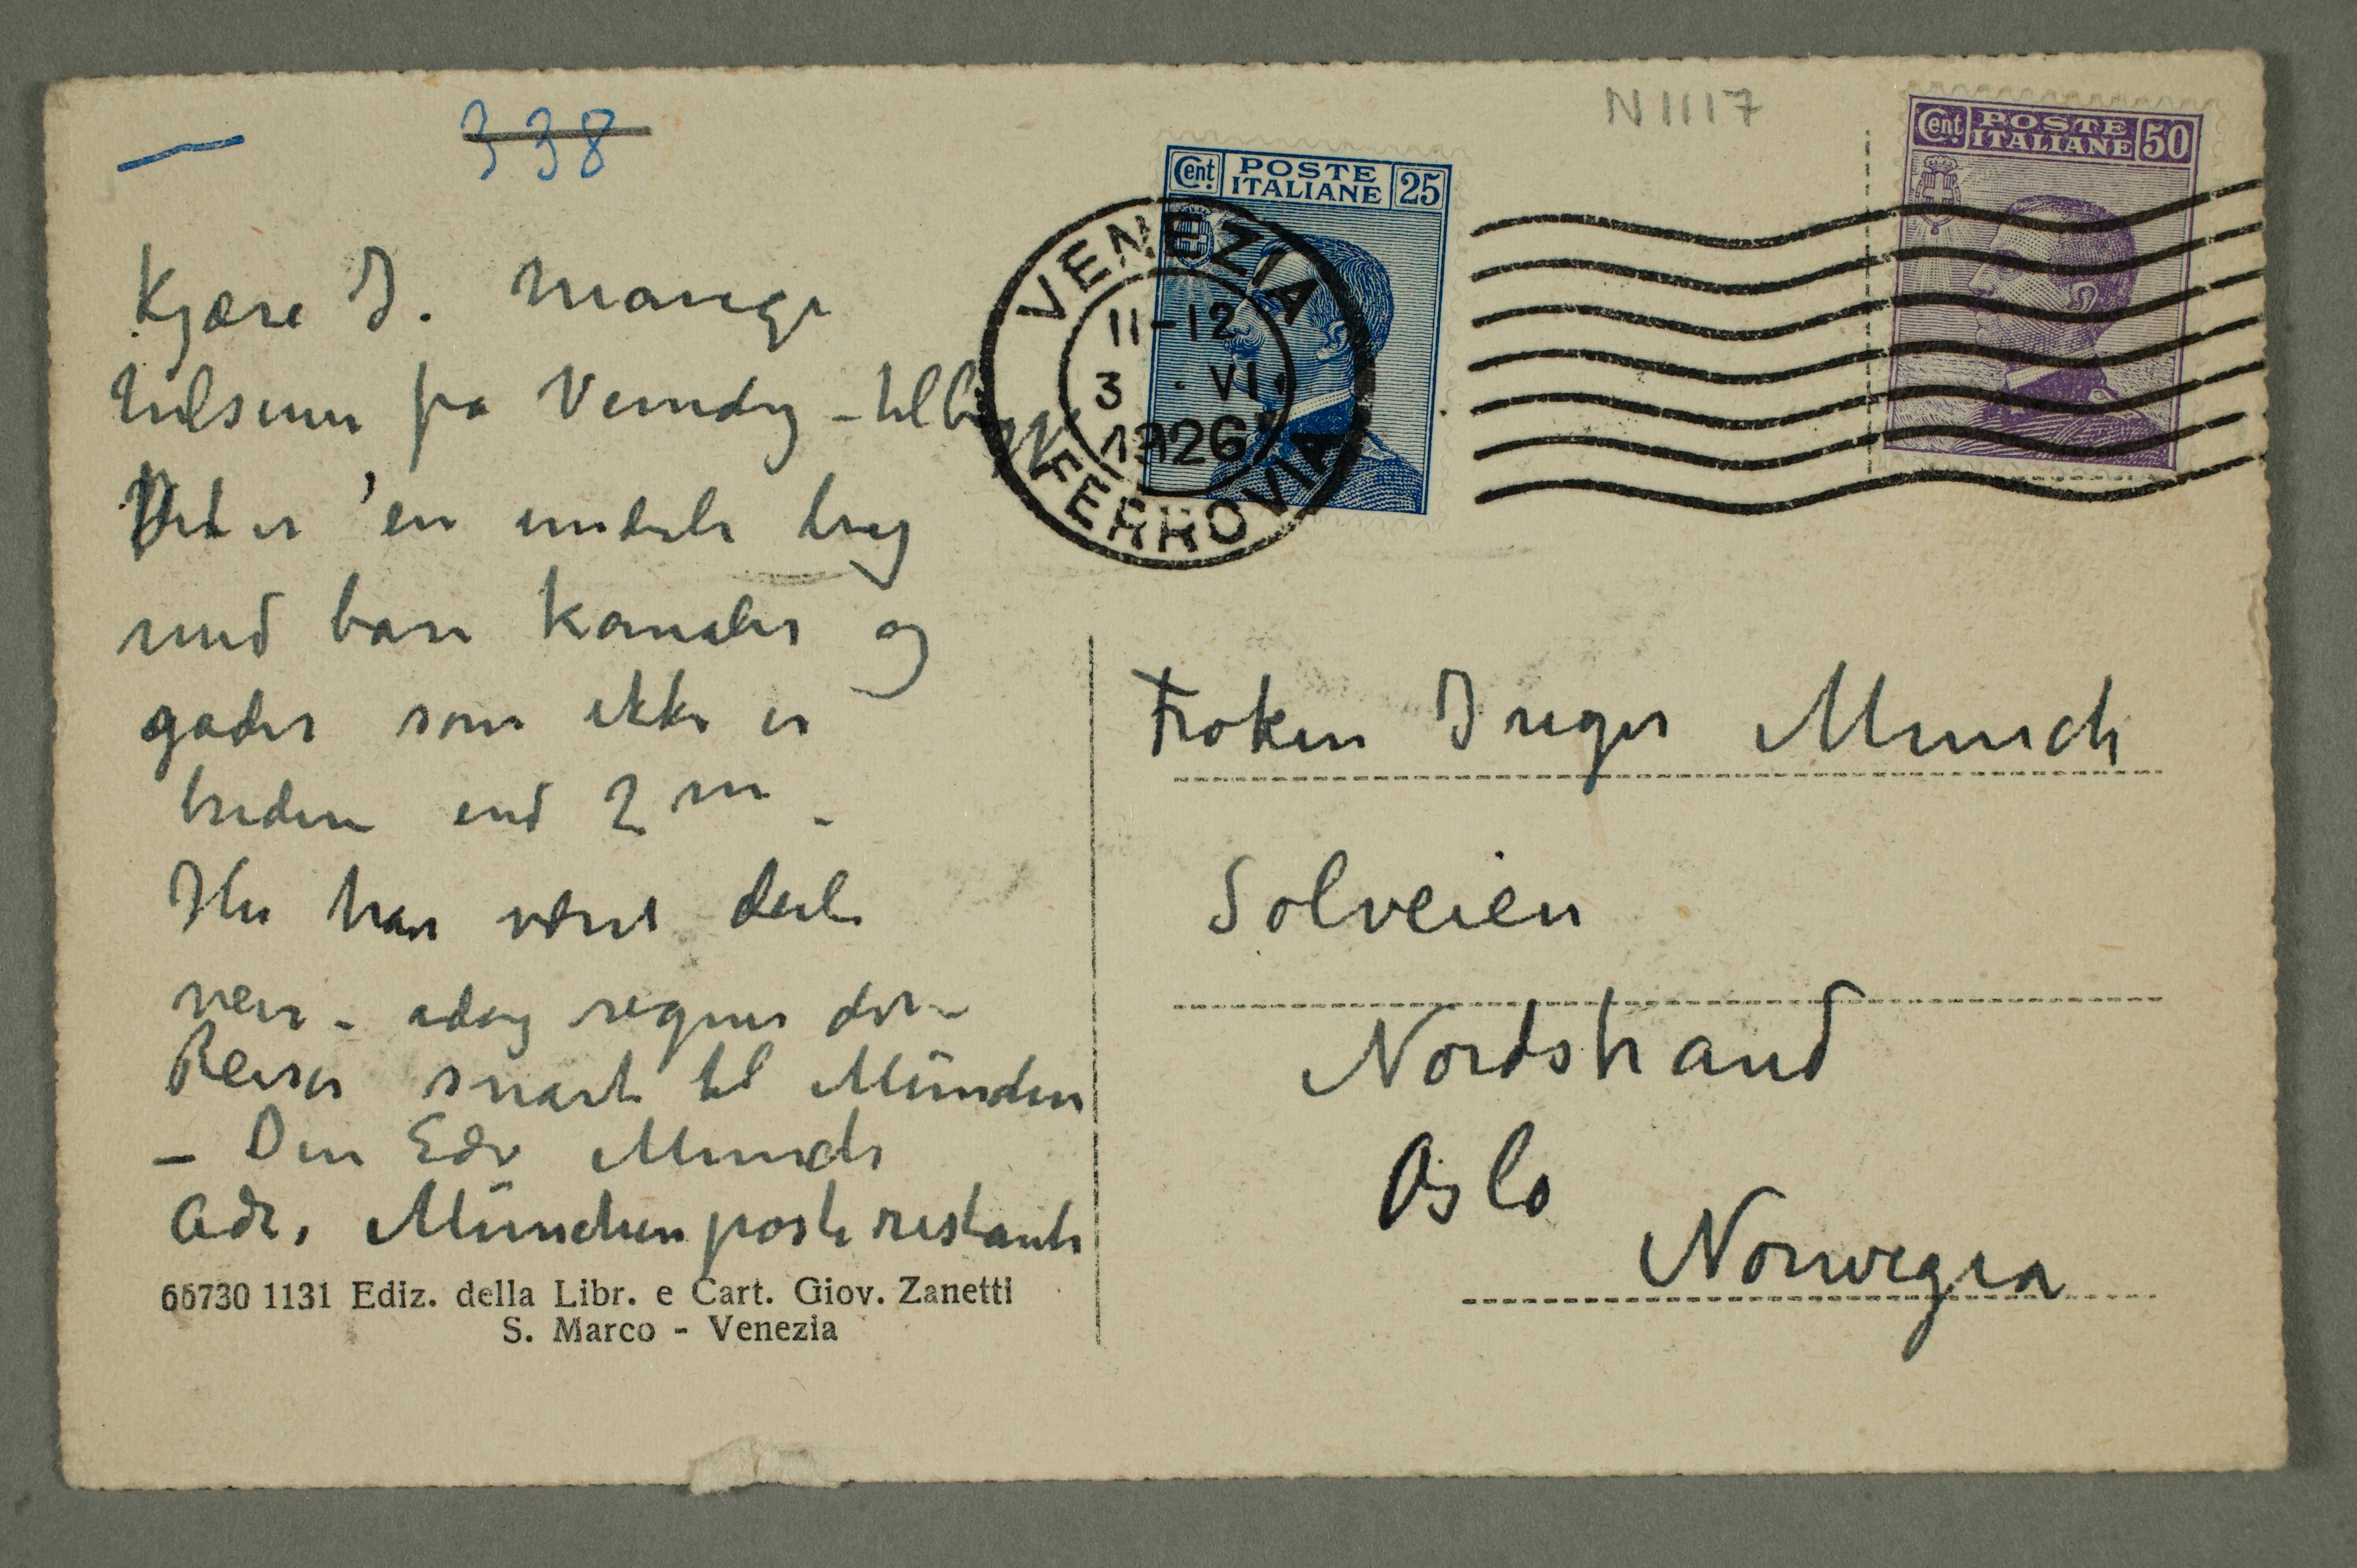 338
N 1117
Cent POSTE ITALIANE 25
Cent. POSTE ITALIANE 50
VENEZIA
11-12
3 . VI.
1926
FERROVIA
Kjære I. Mange
hilsener fra Venedig –
Det er en underlig by
med bare kanaler og
gader som ikke er
bredere end 2 m –
Her har været deilig
veir – idag regner det –
Reiser snart til München
– Din Edv Munch
Adr. München poste restante
66730 1131 Ediz. della Libr. e Cart. Giov. Zanetti
S. Marco - Venezia
Frøken Inger Munch
Solveien
Nordstrand
Oslo
Norwegia